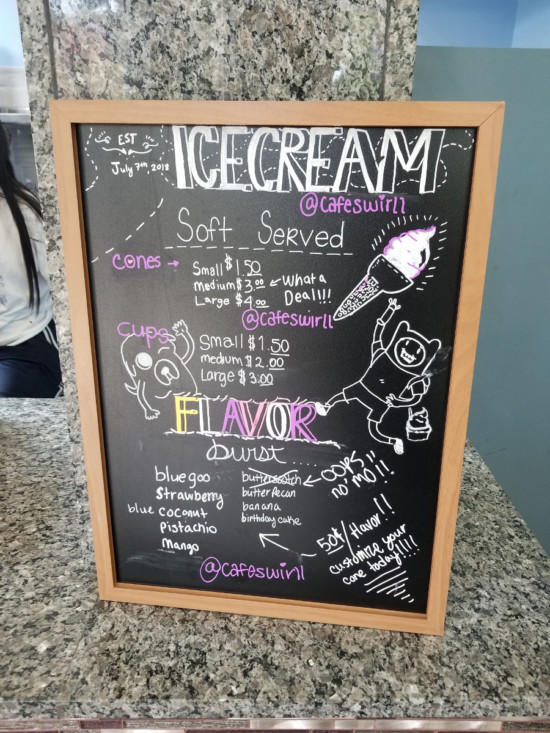 EST
July 7th, 2018
ICECREAM
@cafeswirll
Soft Served
CONES → Small $1.50
medium $3.00 ← What a
Large $4.00 Deal!!!
@cafeswirll
CUPS Small $1.50
medium $2.00
Large $3.00
FLAVOR
burst
bluegoo
Strawberry
blue coconut
Pistachio
mango
butterscotch ← OOPS
butter Pecan no' mo'!!
banana
birthday cake
50¢/flavor!!
customize your
cone today!!!!
@cafeswirl